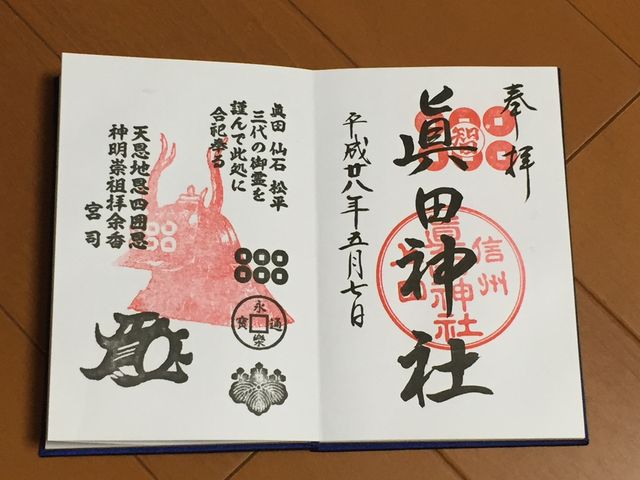 奉拝
智
眞田神社
信州
上田
眞田神社
平成廿八年五月七日
眞田 仙石 松平
三代の御霊を
謹んで此処に
合祀奉る
天恩地恩四囲恩
神明崇祖拝余香
宮司
永樂通寳